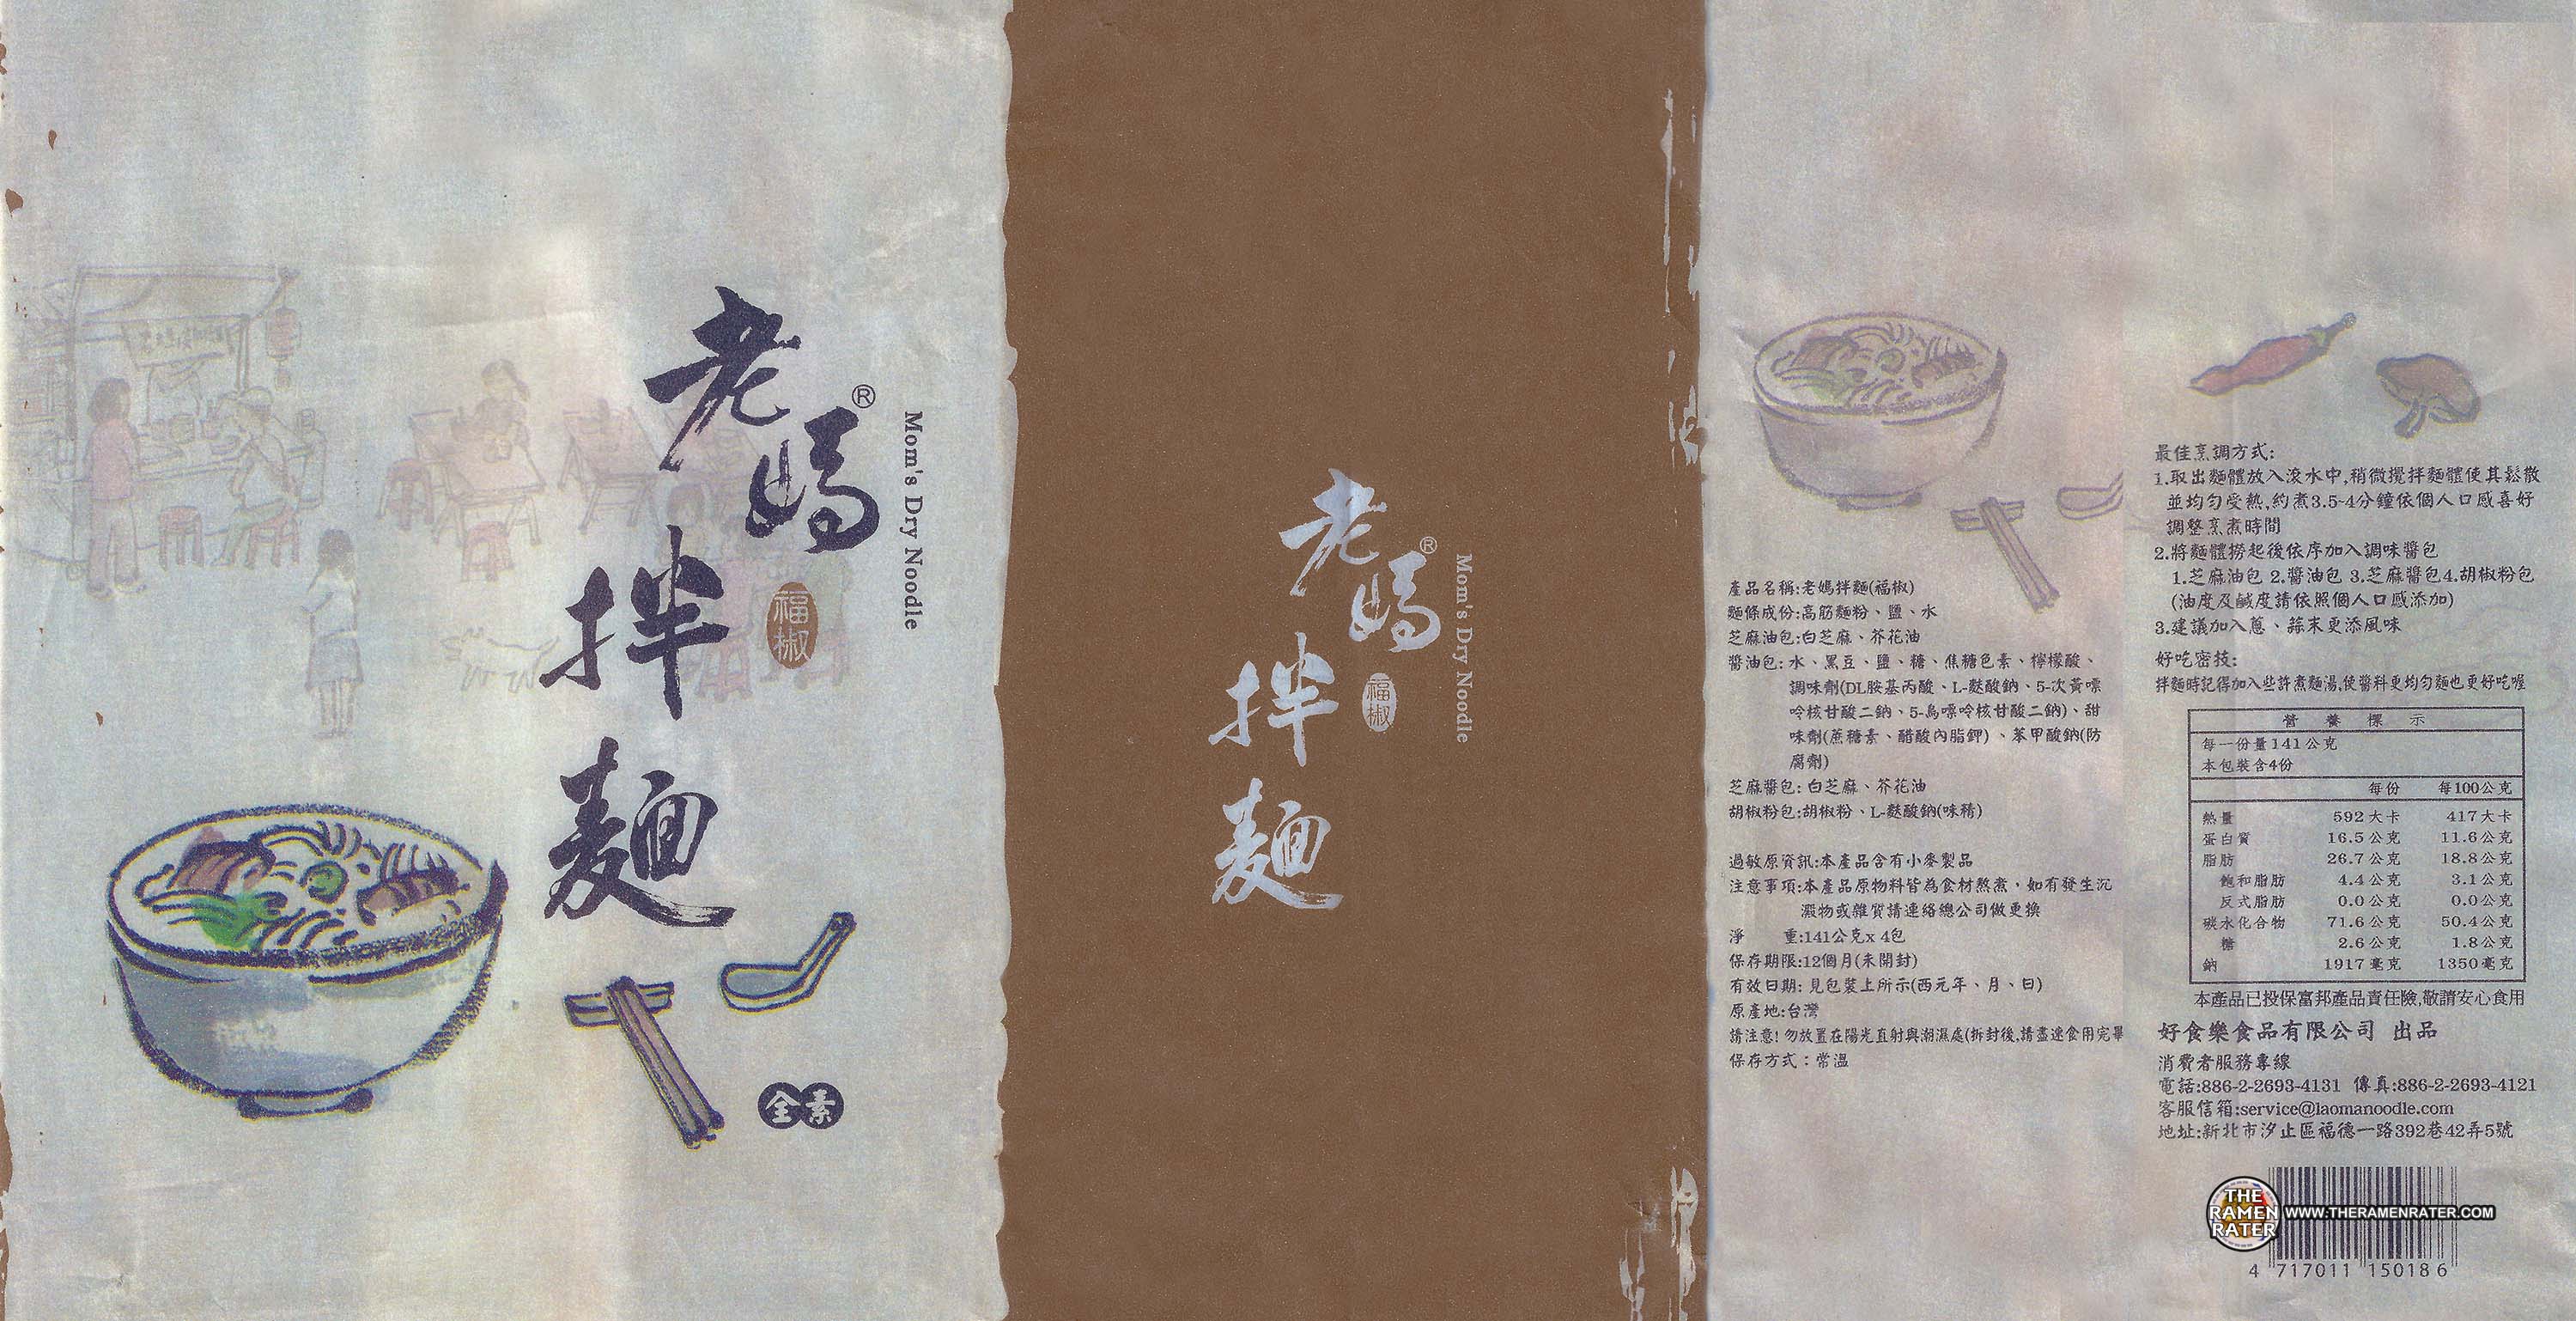 老媽拌麵
®
Mom's Dry Noodle
福椒
全素
老媽拌麵
®
Mom's Dry Noodle
福椒
產品名稱:老媽拌麵(福椒)
麵條成份:高筋麵粉、鹽、水
芝麻油包:白芝麻、芥花油
醬油包: 水、黑豆、鹽、糖、焦糖色素、檸檬酸、
調味劑(DL胺基丙酸、L-麩酸鈉、5-次黃嘌
呤核甘酸二鈉、5-鳥嘌呤核甘酸二鈉)、甜
味劑(蔗糖素、醋酸內脂鉀)、苯甲酸鈉(防
腐劑)
芝麻醬包: 白芝麻、芥花油
胡椒粉包:胡椒粉、L-麩酸鈉(味精)
過敏原資訊:本產品含有小麥製品
注意事項:本產品原物料皆為食材熬煮，如有發生沉
澱物或雜質請連絡總公司做更換
淨 重:141公克x 4包
保存期限:12個月(未開封)
有效日期: 見包裝上所示(西元年、月、日)
原產地:台灣
請注意! 勿放置在陽光直射與潮濕處(拆封後,請盡速食用完畢
保存方式：常溫
最佳烹調方式:
1.取出麵體放入滾水中,稍微攪拌麵體使其鬆散
並均勻受熱,約煮3.5-4分鐘依個人口感喜好
調整烹煮時間
2.將麵體撈起後依序加入調味醬包
1.芝麻油包 2.醬油包 3.芝麻醬包4.胡椒粉包
(油度及鹹度請依照個人口感添加)
3.建議加入蔥、蒜末更添風味
好吃密技:
拌麵時記得加入些許煮麵湯,使醬料更均勻麵也更好吃喔
營養標示
每一份量141公克
本包裝含4份
每份 每100公克
熱量 592大卡 417大卡
蛋白質 16.5公克 11.6公克
脂肪 26.7公克 18.8公克
飽和脂肪 4.4公克 3.1公克
反式脂肪 0.0公克 0.0公克
碳水化合物 71.6公克 50.4公克
糖 2.6公克 1.8公克
鈉 1917毫克 1350毫克
本產品已投保富邦產品責任險,敬請安心食用
好食樂食品有限公司 出品
消費者服務專線
電話:886-2-2693-4131 傳真:886-2-2693-4121
客服信箱:service@laomanoodle.com
地址:新北市汐止區福德一路392巷42弄5號
THE RAMEN RATER
WWW.THERAMENRATER.COM
4 717011 150186